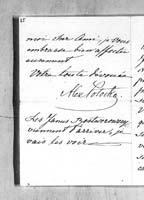 moi cher Ami, je vous
embrasse bien affectu
eusement
Votre toute dévouée
Alex Potocka
Les Janus
viennent d'arriver, je
vais les voir